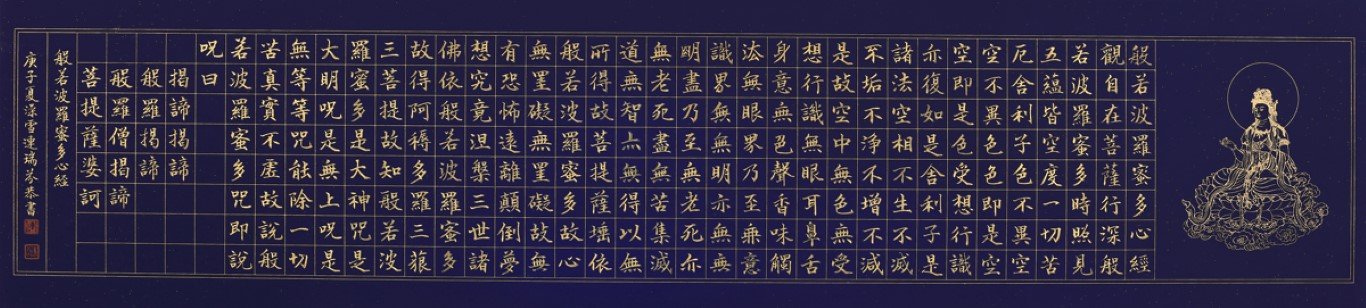 般若波羅蜜多心經
觀自在菩薩行深般
若波羅蜜多時照見
五蘊皆空度一切苦
厄舍利子色不異空
空不異色色即是空
空即是色受想行識
亦復如是舍利子是
諸法空相不生不滅
不垢不淨不增不減
是故空中無色無受
想行識無眼耳鼻舌
身意無色聲香味觸
法無眼界乃至無意
識界無無明亦無無
明盡乃至無老死亦
無老死盡無苦集滅
道無智亦無得以無
所得故菩提薩埵依
般若波羅蜜多故心
無罣礙無罣礙故無
有恐怖遠離顛倒夢
想究竟涅槃三世諸
佛依般若波羅蜜多
故得阿耨多羅三藐
三菩提故知般若波
羅蜜多是大神咒是
大明呪是無上呪是
無等等咒能除一切
苦真實不虛故說般
若波羅蜜多咒即說
呪曰
揭諦揭諦
般羅揭諦
般羅僧揭諦
菩提薩婆訶
般若波羅蜜多心經
庚子夏深雪連瑞芬恭書